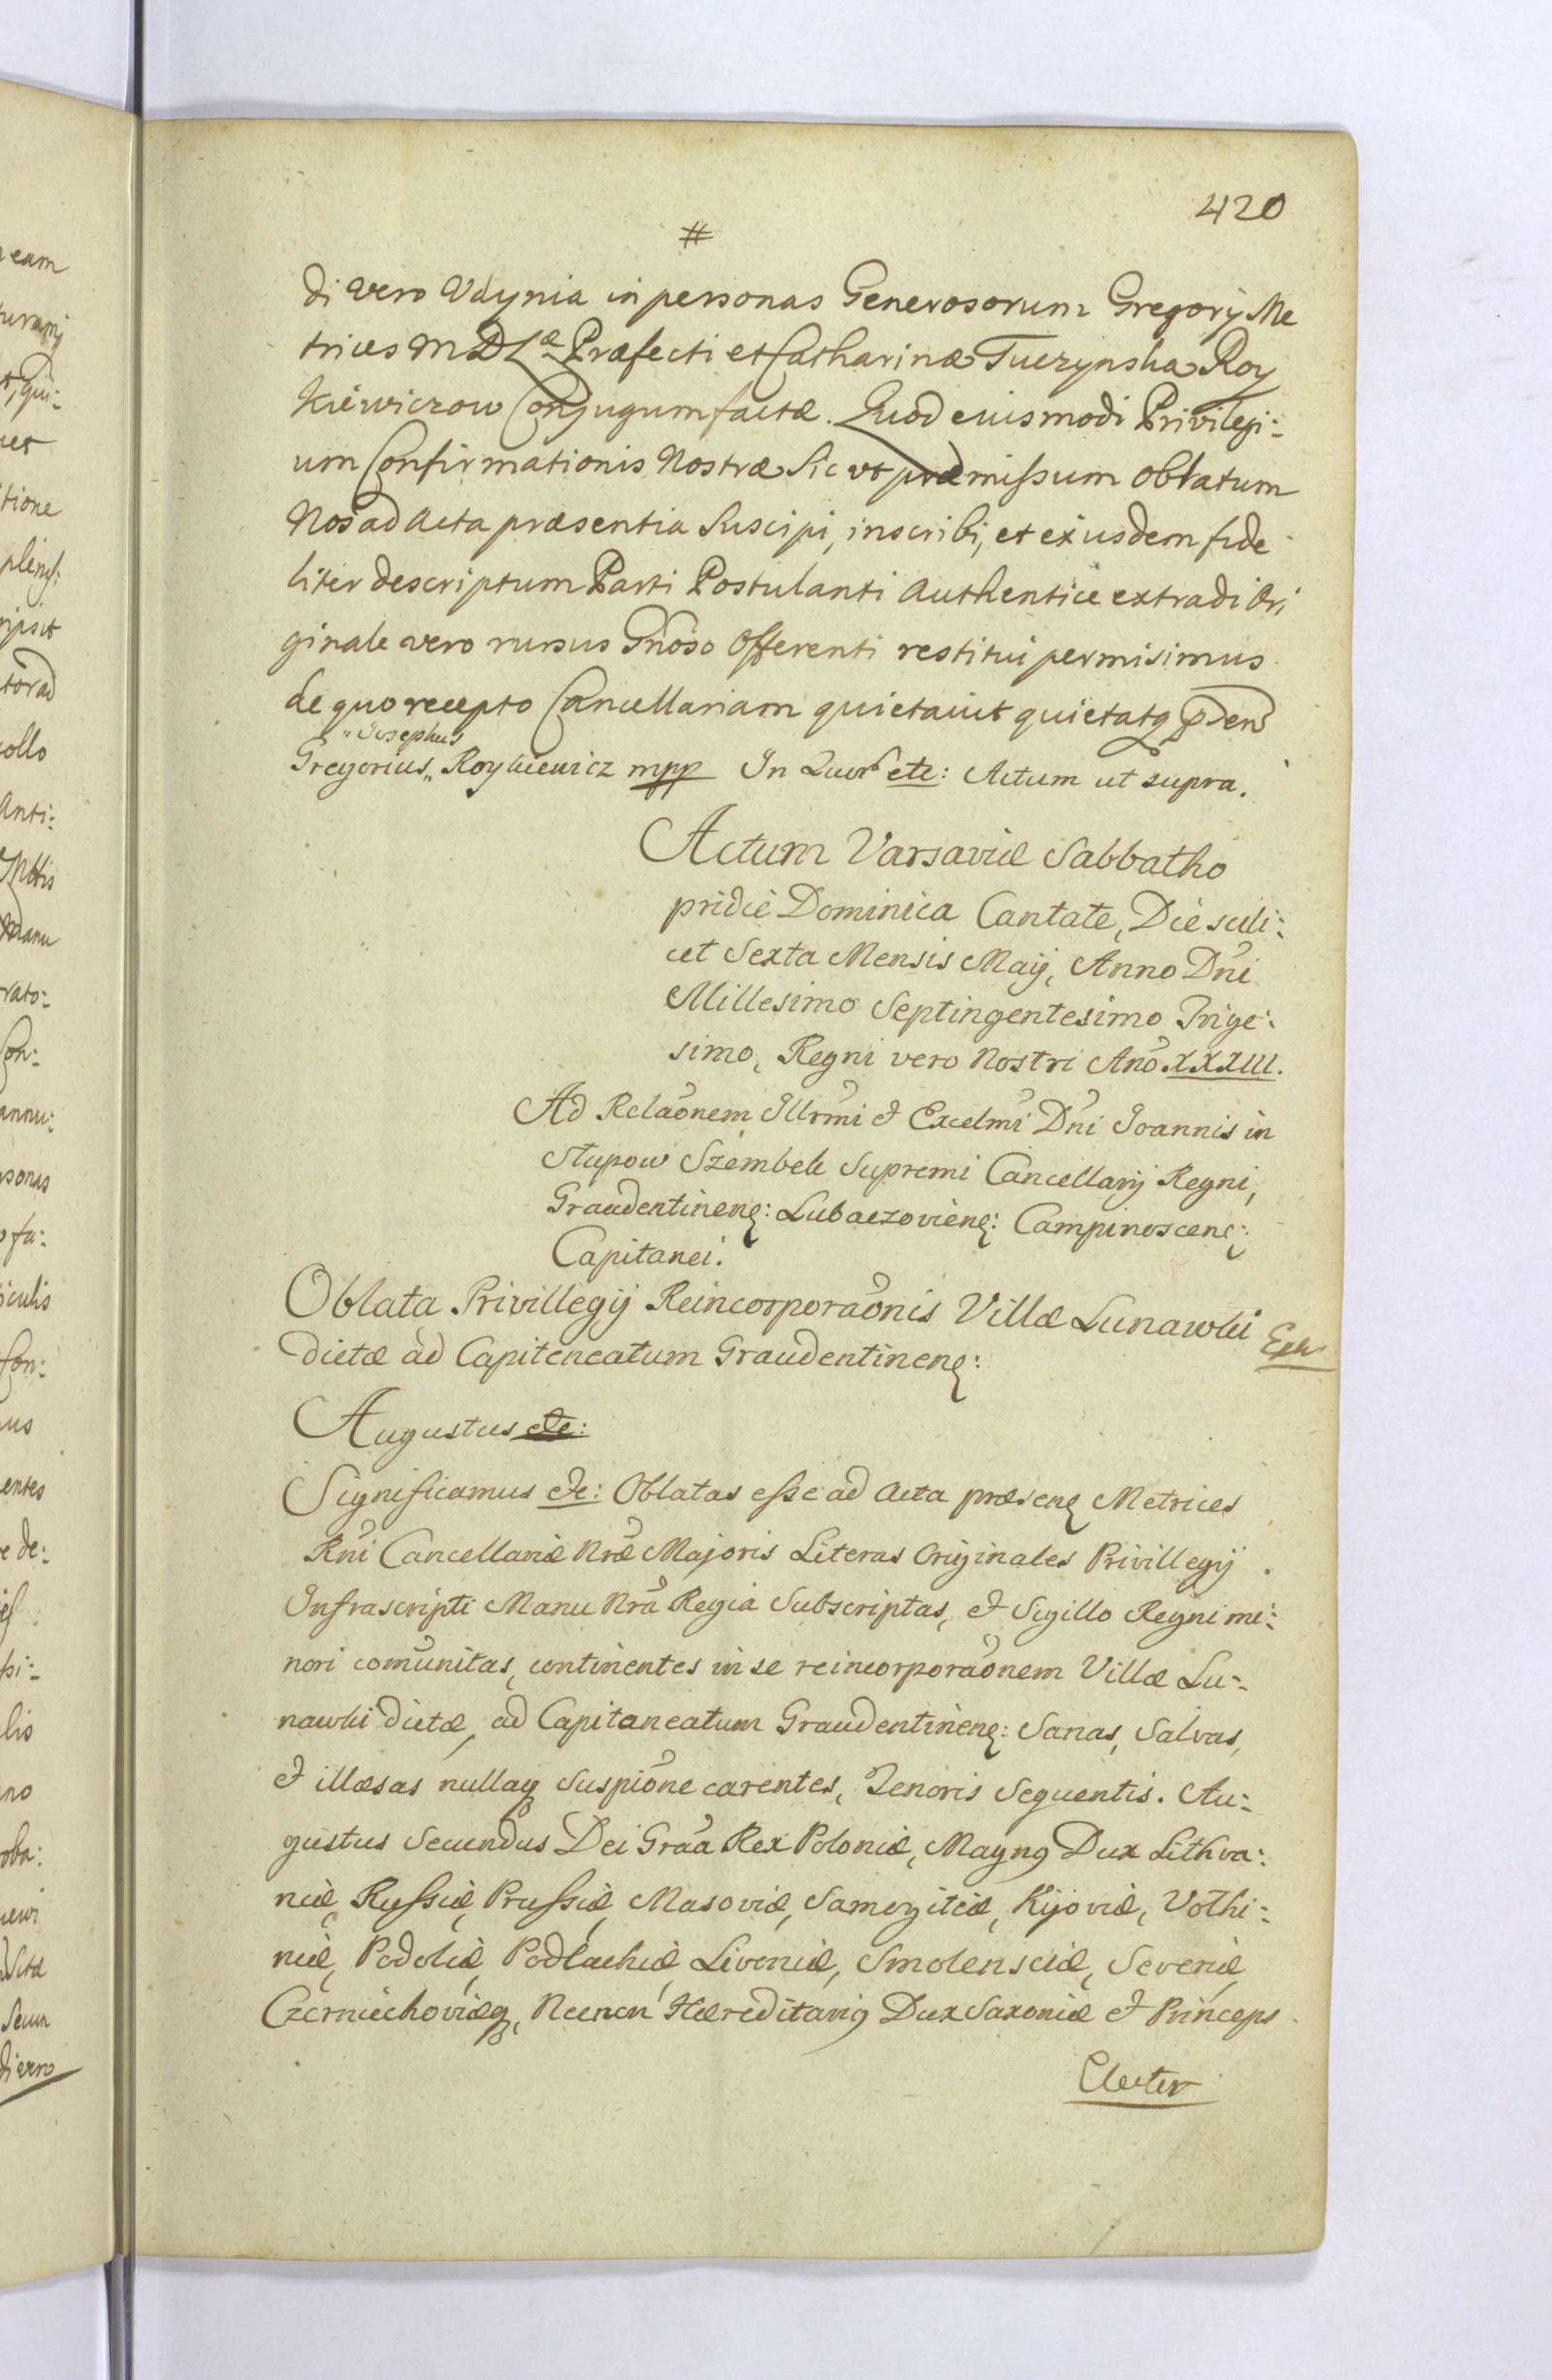 420
#
di vero Udynia in personas Generosorum Gregorij Me
trices M D Læ Præfecti et Catharinæ Tuczynska Roy
kiewiczow Conjugum factæ. Quod eiusmodi Privilegi:
um Confirmationis Nostræ Sic ut præmissum oblatum
Nos ad Acta præsentia Suscipi, inscribi, et ejusdem fide
liter descriptum Parti Postulanti Authentice extradi Ori
ginale vero rursus Gnoso Offerenti restitui permisimus
de quo recepto Cancellariam quietavit quietatq
"Josephus
Gregorius" Roykiewicz mpp In Quor etc: Actum ut supra.
Actum Varsaviæ Sabbatho
pridie Dominica Cantate, Die scili:
cet Sexta Mensis Maij, Anno Dni
Millesimo Septingentesimo Trige:
simo, Regni vero Nostri Ano. XXXIII.
Ad Relaõnem Illrmi et Excelmi Dni Joannis in
Słupow Szembek Supremi Cancellarij Regni,
Graudentinenȩ: Lubaczovienȩ: Campinoscenȩ:
Capitanei.
Oblata Privillegij Reincorporaõnis Villæ Lunawki
dictæ ad Capiteneatum Graudentinenȩ:
Augustus etc:
Significamus etc: Oblatas esse ad Acta præsenȩ Metrices
Rni Cancellariæ Nræ Majoris Literas Originales Privillegij
Infrascripti Manu Nra Regia Subscriptas, et Sigillo Regni mi:
nori comunitas, continentes in se reincorporaõnem Villæ Lu:
nawki dictæ, ad Capitaneatum Graudentinenȩ: Sanas, Salvas,
et illæsas nullaq Suspiõne carentes, Tenoris Sequentis. Au:
gustus Secundus Dei Graa Rex Poloniæ, Magnq Dux Lithva:
niæ, Russiæ, Prussiæ, Masoviæ, Samogitiæ, Kijoviæ, Volhi:
niæ, Podoliæ, Podlachiæ, Livoniæ, Smolensciæ, Severiæ,
Czerniechoviæq, Necnon Hæreditariq Dux Saxoniæ et Princeps
Elector